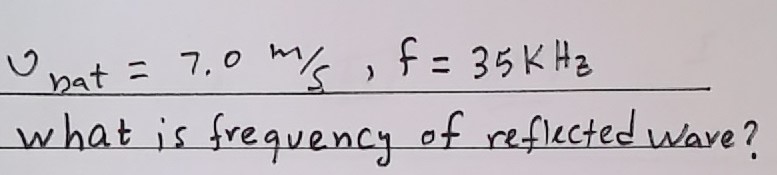 υ bat = 7.0 m/s , f = 35KHz
what is frequency of reflected wave?